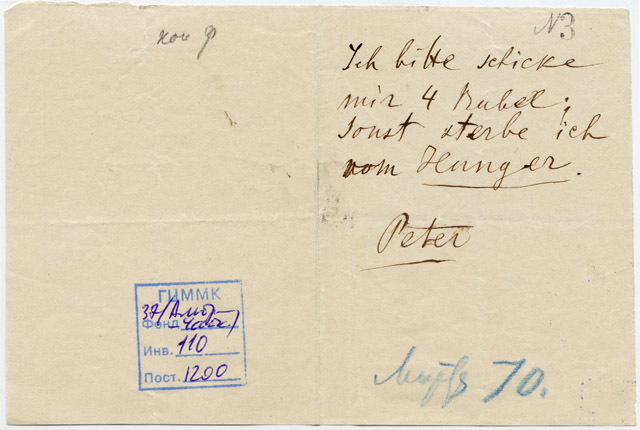 N3
Ich bitte schicke
mir 4 Rubel,
sonst sterbe ich
vom Hunger.
Peter
ГИММК
37/
Фонд
Инв. 110
Пост. 1200
70.